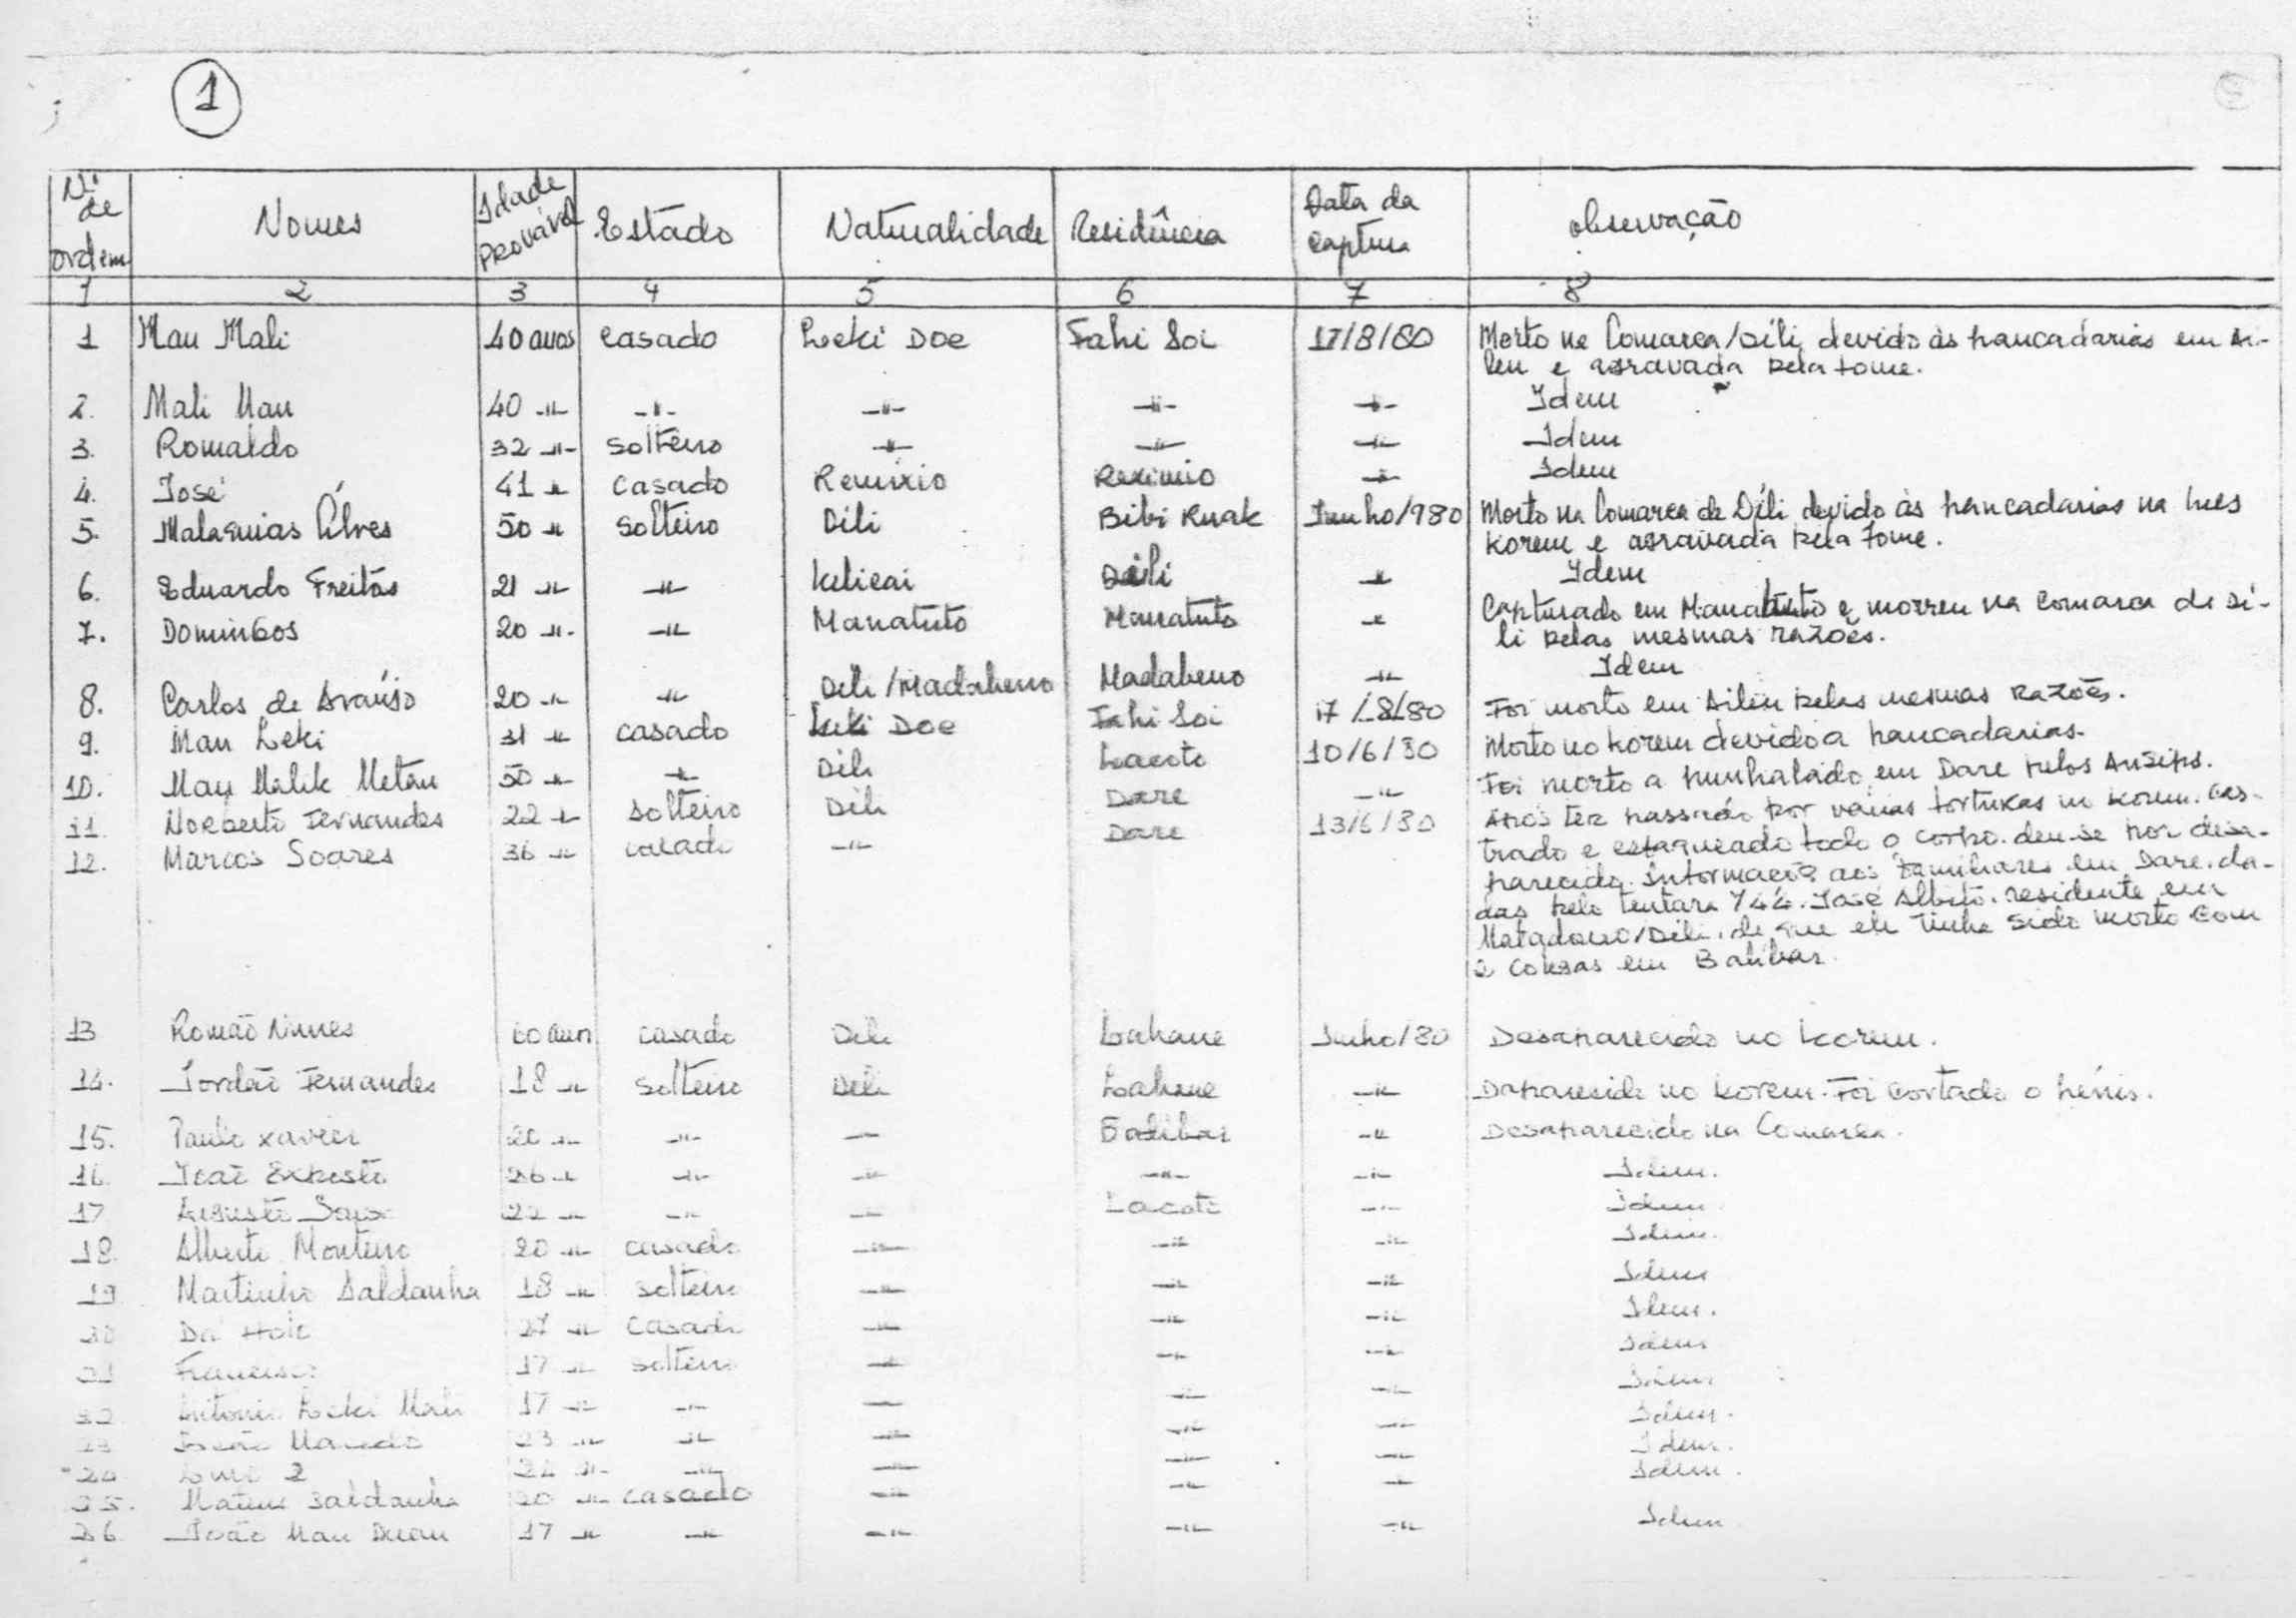 1
Nº de ordem | Nomes | Idade Provável | Estado | Naturalidade | Residência | Data da captura | observação
1 | 2 | 3 | 4 | 5 | 6 | 7 | 8
1 Mau Mali 40 anos casado Leki Doe Fahi Soi 17/8/80 Morto na Comarca/Díli devido às pancadarias em Ai-
leu e agravada pela fome.
2. Mali Mau 40 -"- -"- -"- -"- -"- Idem
3. Romaldo 32 -"- solteiro -"- -"- -"- Idem
4. José 41 -"- casado Remixio Reximio -"- Idem
5. Malaquias Álves 50 -"- solteiro Dili Bibi Kuak Junho/980 Morto na Comarca de Díli devido às pancadarias na
korem e agravada pela fome.
6. Eduardo Freitas 21 -"- -"- Kelicai Dili -"- Idem
7. Domingos 20 -"- -"- Manatuto Manatuto -"- Capturado em Manatuto e morreu na Comarca de Di-
li pelas mesmas razões.
8. Carlos de Araújo 20 -"- -"- Dili/Madabeno Madabeno -"- Idem
9. Mau Leki 31 -"- casado Leki Doe Fahi Soi 17/8/80 Foi morto em Aileu pelas mesmas razões.
10. Mau Malik Metan 50 -"- -"- Dili Lacoto 10/6/80 Morto no korem devido a pancadarias.
11. Norberto Fernandes 22 -"- solteiro Dili Dare -"- Foi morto a punhalado em Dare pelos
12. Marcos Soares 36 -"- casado -"- Dare 13/6/80 Após ter passado por várias torturas no korem. Cas-
trado e estaqueado todo o corpo. deu-se por desa-
parecido. Informação aos familiares em Dare. da-
das pelo tentara 744. José Albito. residente em
Matadouro/Dili. de que ele tinha sido morto com
2 em Balibar.
13 Romão Nunes 60 anos casado Dili Lahane Junho/80 Desaparecido no korem.
14. Jordão Fernandes 18 -"- solteiro Dili Lahane -"- Daparecido no korem. Foi cortado o pénis.
15. Paulo Xavier 20 -"- -"- -"- Balibar -"- Desaparecido na Comarca.
16. João Exposto 26 -"- -"- -"- -"- -"- Idem.
17 Augusto 22 -"- -"- -"- Lacoto -"- Idem
18. Alberto Monteiro 20 -"- casado -"- -"- -"- Idem.
19 Martinho Saldanha 18 -"- solteiro -"- -"- -"- Idem
20 27 -"- casado -"- -"- -"- Idem.
21 Francisco 17 -"- solteiro -"- -"- -"- Idem
22 Antonio Leki Mali 17 -"- -"- -"- -"- -"- Idem
23 Macedo 23 -"- -"- -"- -"- -"- Idem.
24 -"- -"- -"- -"- -"- Idem.
25. Mateus Saldanha 20 -"- casado -"- -"- -"- Idem.
26 João Mau 17 -"- -"- -"- -"- -"- Idem